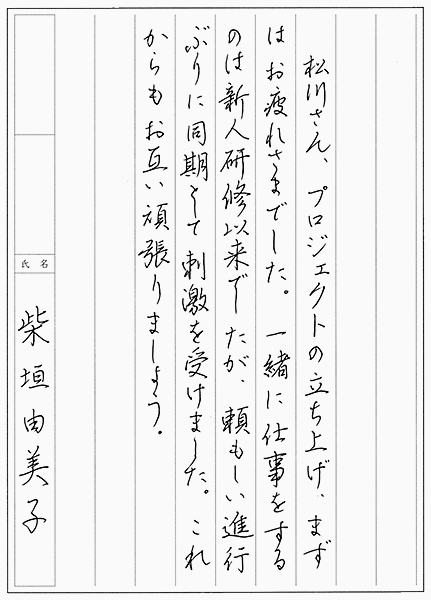 松川さん、プロジェクトの立ち上げ、まず
はお疲れさまでした。一緒に仕事をする
のは新人研修以来でしたが、頼もしい進行
ぶりに同期として刺激を受けました。これ
からもお互い頑張りましょう。
氏名
柴垣由美子